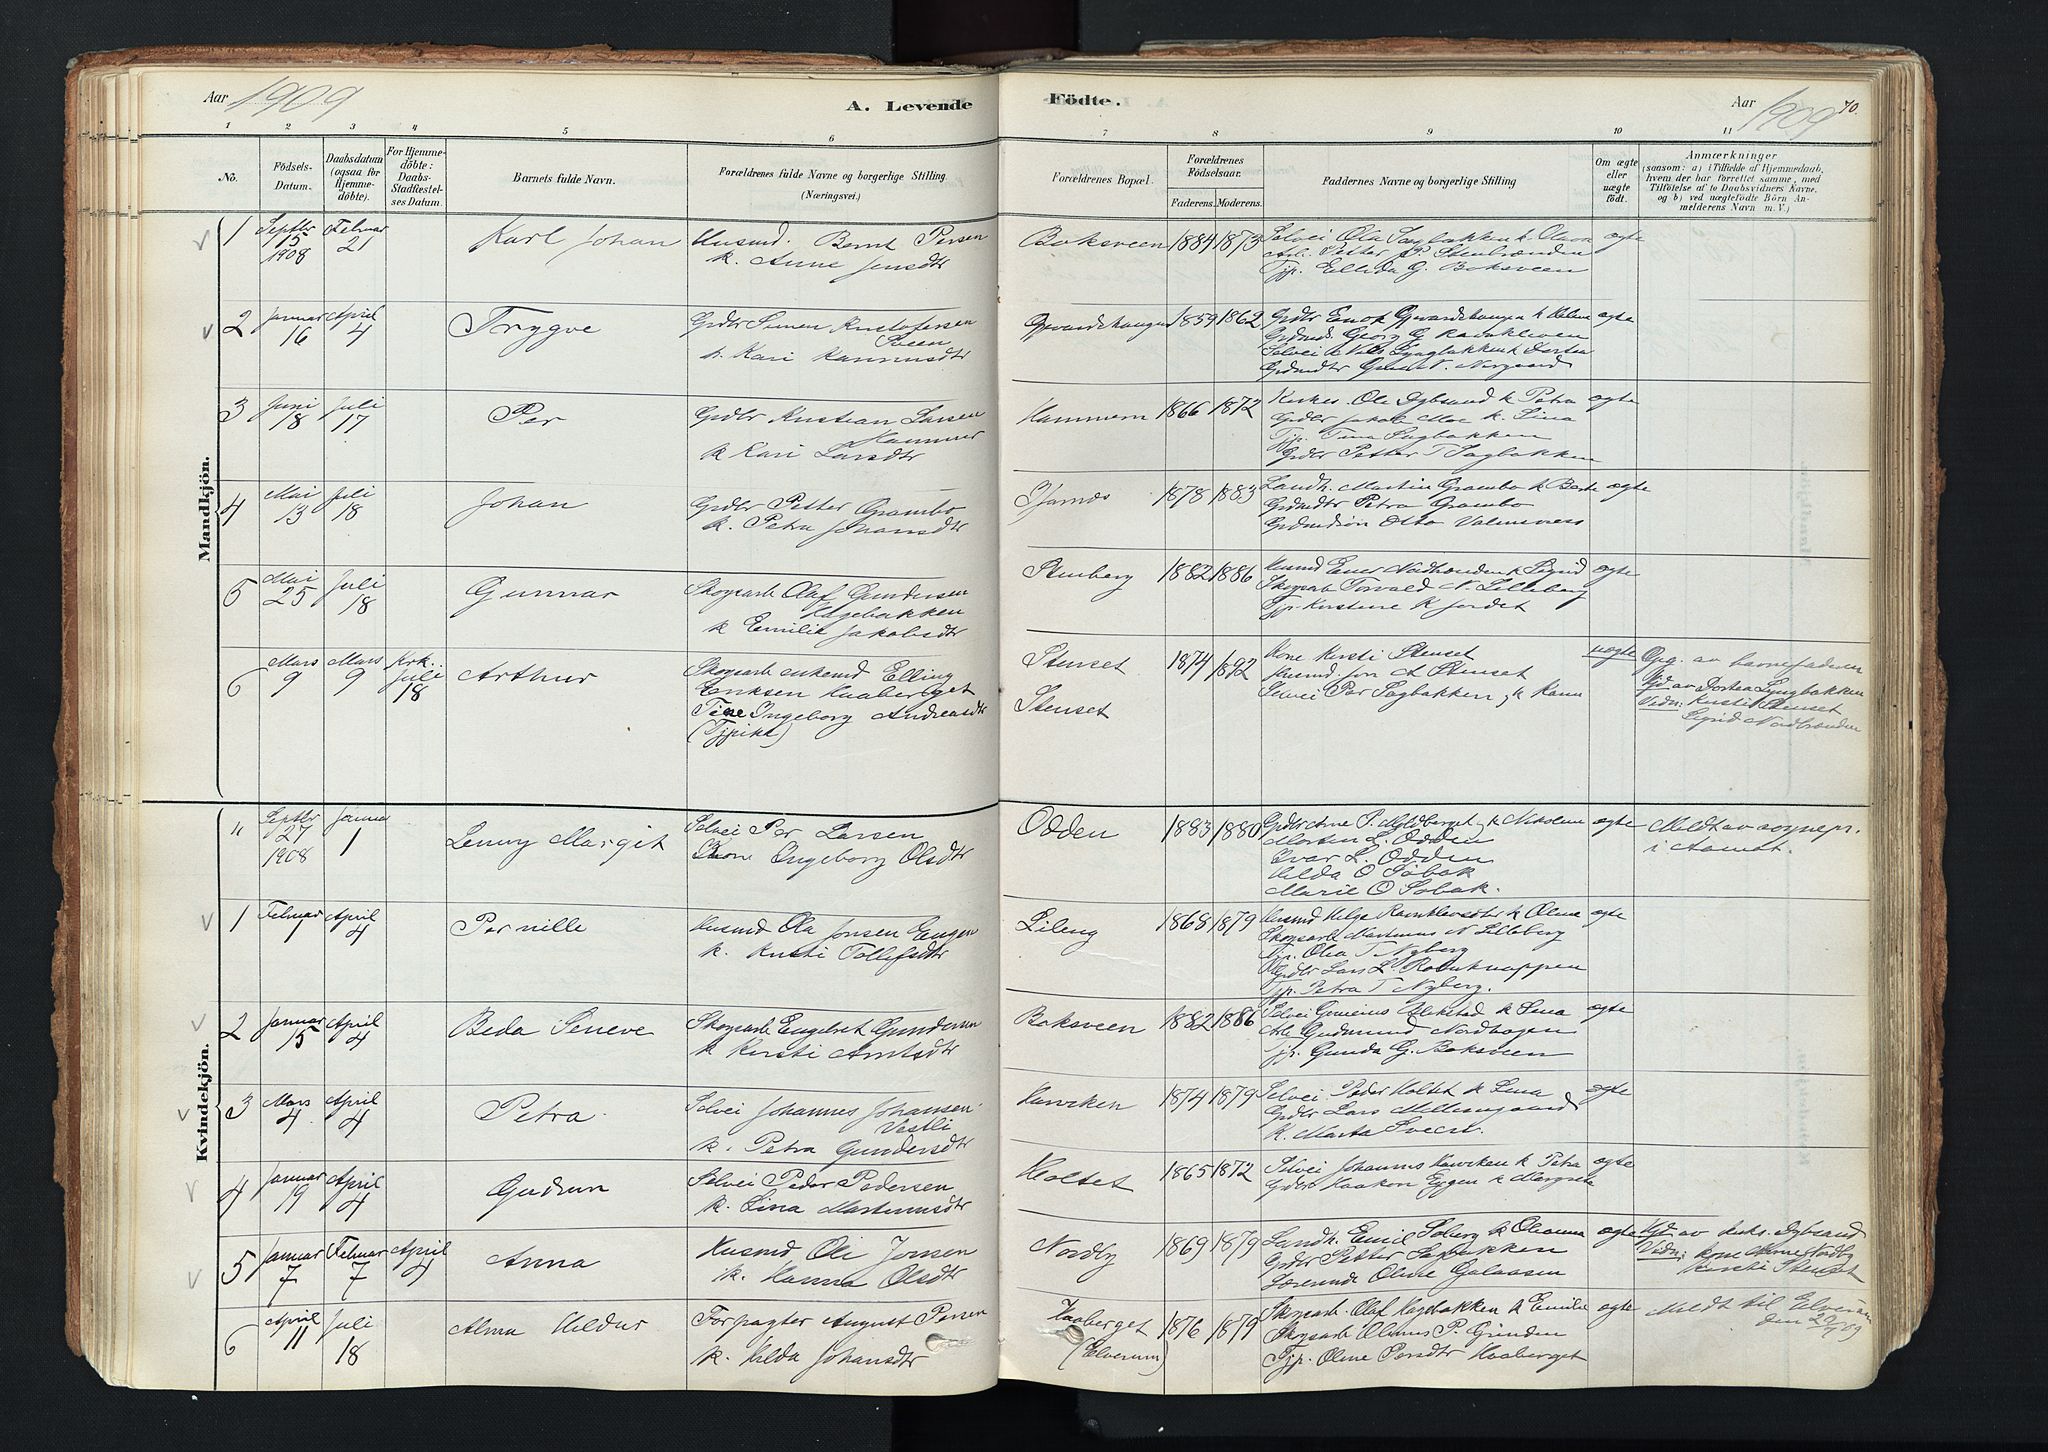 Aar 1909
A. Levende Födte.
Aar 1909
70.
1 2 3 4 5 6 7 8 9 10 11
No.
Födsels-Datum.
Daabsdatum (ogsaa for Hjemmedöbte).
For Hjemmedöbte: Daabs-Stadfæstelses Datum.
Barnets fulde Navn.
Forældrenes fulde Navne og borgerlige Stilling. (Næringsvei.)
Forældrenes Bopæl.
Forældrenes Födselsaar.
Faderens. Moderens.
Faddernes Navne og borgerlige Stilling
Om ægte eller uægte födt.
Anmærkninger
(saasom: a) i Tilfælde af Hjemmedaab,
hvem der har forrettet samme, med
Tilföielse af to Daabsvidners Navne,
og b) ved uægtefödte Börn An-
melderens Navn m. V.)
Mandkjön.
1 Septbr 15 1908 Februar 21 Karl Johan Husmd. Bernt Persen
k. Anne Jensdtr
Boksveen 1884 1873 Selvei Ola Sagbakken k. Olava
Arb. Petter P. Stenbrænden
Tjp. Ellida G. Boksveen
ægte
2 Januar 16 April 4 Trygve Grdbr Simen Kristofersen
Sveen
k. Kari
1859 1862 Grdbr Enok k Helene
Grdmds. Georg G Ravnkleven
Selvei k Nils Lyngbakken k Dortea
ægte
3 Juni 18 Juli 17 Per Grdbr Kristian Larsen
Hammer
k Kari Larsdtr
Hammern 1866 1872 Kirkes. Ole Dybsand k Petra
Grdbr Jakob Moe k. Lina
Tjp. Tina Sagbakken
Grdbr Petter T Sagbakken
ægte
4 Mai 13 Juli 18 Johan Grdbr Petter Grambo
k. Petra Johansdtr
1878 1883 Landh. Martin Grambo k Berte
Grdmdtr Petra Grambo
Otto
ægte
5 Mai 25 Juli 18 Gunnar Skogsarb Olaf Gundersen
Hagebakken
k Emilie Jakobsdtr
Stenberg 1882 1886 Husmd Einer Nordbrænden k Sigrid
Skogsarb Torvald N. Lilleberg
Tjp. Kirstine K Jordet
ægte
6 Mars 9 Mars 9 Krk. Juli 18 Arthur Skogsarb enkemd Elling
Eriksen Haaberget
Tine Ingeborg Andreasdtr
(Tjpike)
Stenset
Stenset
1874 1892 Kone Kersti Stenset
Husmd. Jon A Stenset
Selvei Per Sagbakken, k Karen
uægte Opg. av barnefaderen
Hjd av Dortea Lyngbakken
Vidn: Kersti Stenset
Sigrid Nordbrænden
Kvindekjön.
" Septbr 27 1908 Januar 1 Lenny Margit Selvei Per Larsen
Kone Ingeborg Olsdtr
Odden 1883 1880 Grdbr Arne P. Myldberget, k Nikoline
Morten L. Odden
Ivar L. Odden
Hilda O Søbak
Marie O Søbak.
ægte Meldt av sognepr.
i Aamot.
1 Februar 1 April 4 Pernille Husmd Ola Jonsen Engen
k. Kersti Tollefsdtr
Lileng 1868 1879 Husmd Helge k Oline
Skogsarb Martinus N Lilleberg
Tjp. Olea T Nyberg
Grdbr Lars L.
Tjp. Petra T Nyberg.
ægte
2 Januar 15 April 4 Beda Seneve Skogsarb Engebret Gundersen
k Kersti Arntsdtr
Boksveen 1882 1886 Selvei Ulekstad k Lina
Arb. Gudmund Nordhagen
Tjp. Gunda G. Boksveen
ægte
3 Mars 4 April 4 Petra Selvei Johannes Johansen
Vestli
k. Petra Gundersdtr
Kurvken 1874 1879 Selvei Peder Holtet k Lina
Grdbr Lars Mellemgaard
k. Marta Sveen.
ægte
4 Januar 19 April 4 Gudrun Selvei Peder Pedersen
k. Lina Martinusdtr
Holtet 1865 1872 Selvei Johannes Kurvken k Petra
Grdbr Haakon Eggen k Margrete
ægte
5 Januar 7 Februar 7 April 4 Anna Husmd Oli Jonsen
k. Hanna Olsdtr
Nordby 1869 1879 Landh. Emil Soberg k Oleanna
Grdbr Petter Sagbakken
Lærerinde Oline Galaasen
ægte Hjd av kirks. Dybsand
Vidn: kone Nordby
Kersti Stenset
6 April 11 Juli 18 Alma Hildur Forpagter August Persen
k. Hilda Johansdtr
Haaberget
(Elverum)
1876 1879 Skogsarb. Olaf Hagebakken k Emilie
Skogsarb Olinus P. Grinden
Tjp. Oline Persdtr Haaberget
ægte Meldt til Elverum
den 22/7 09